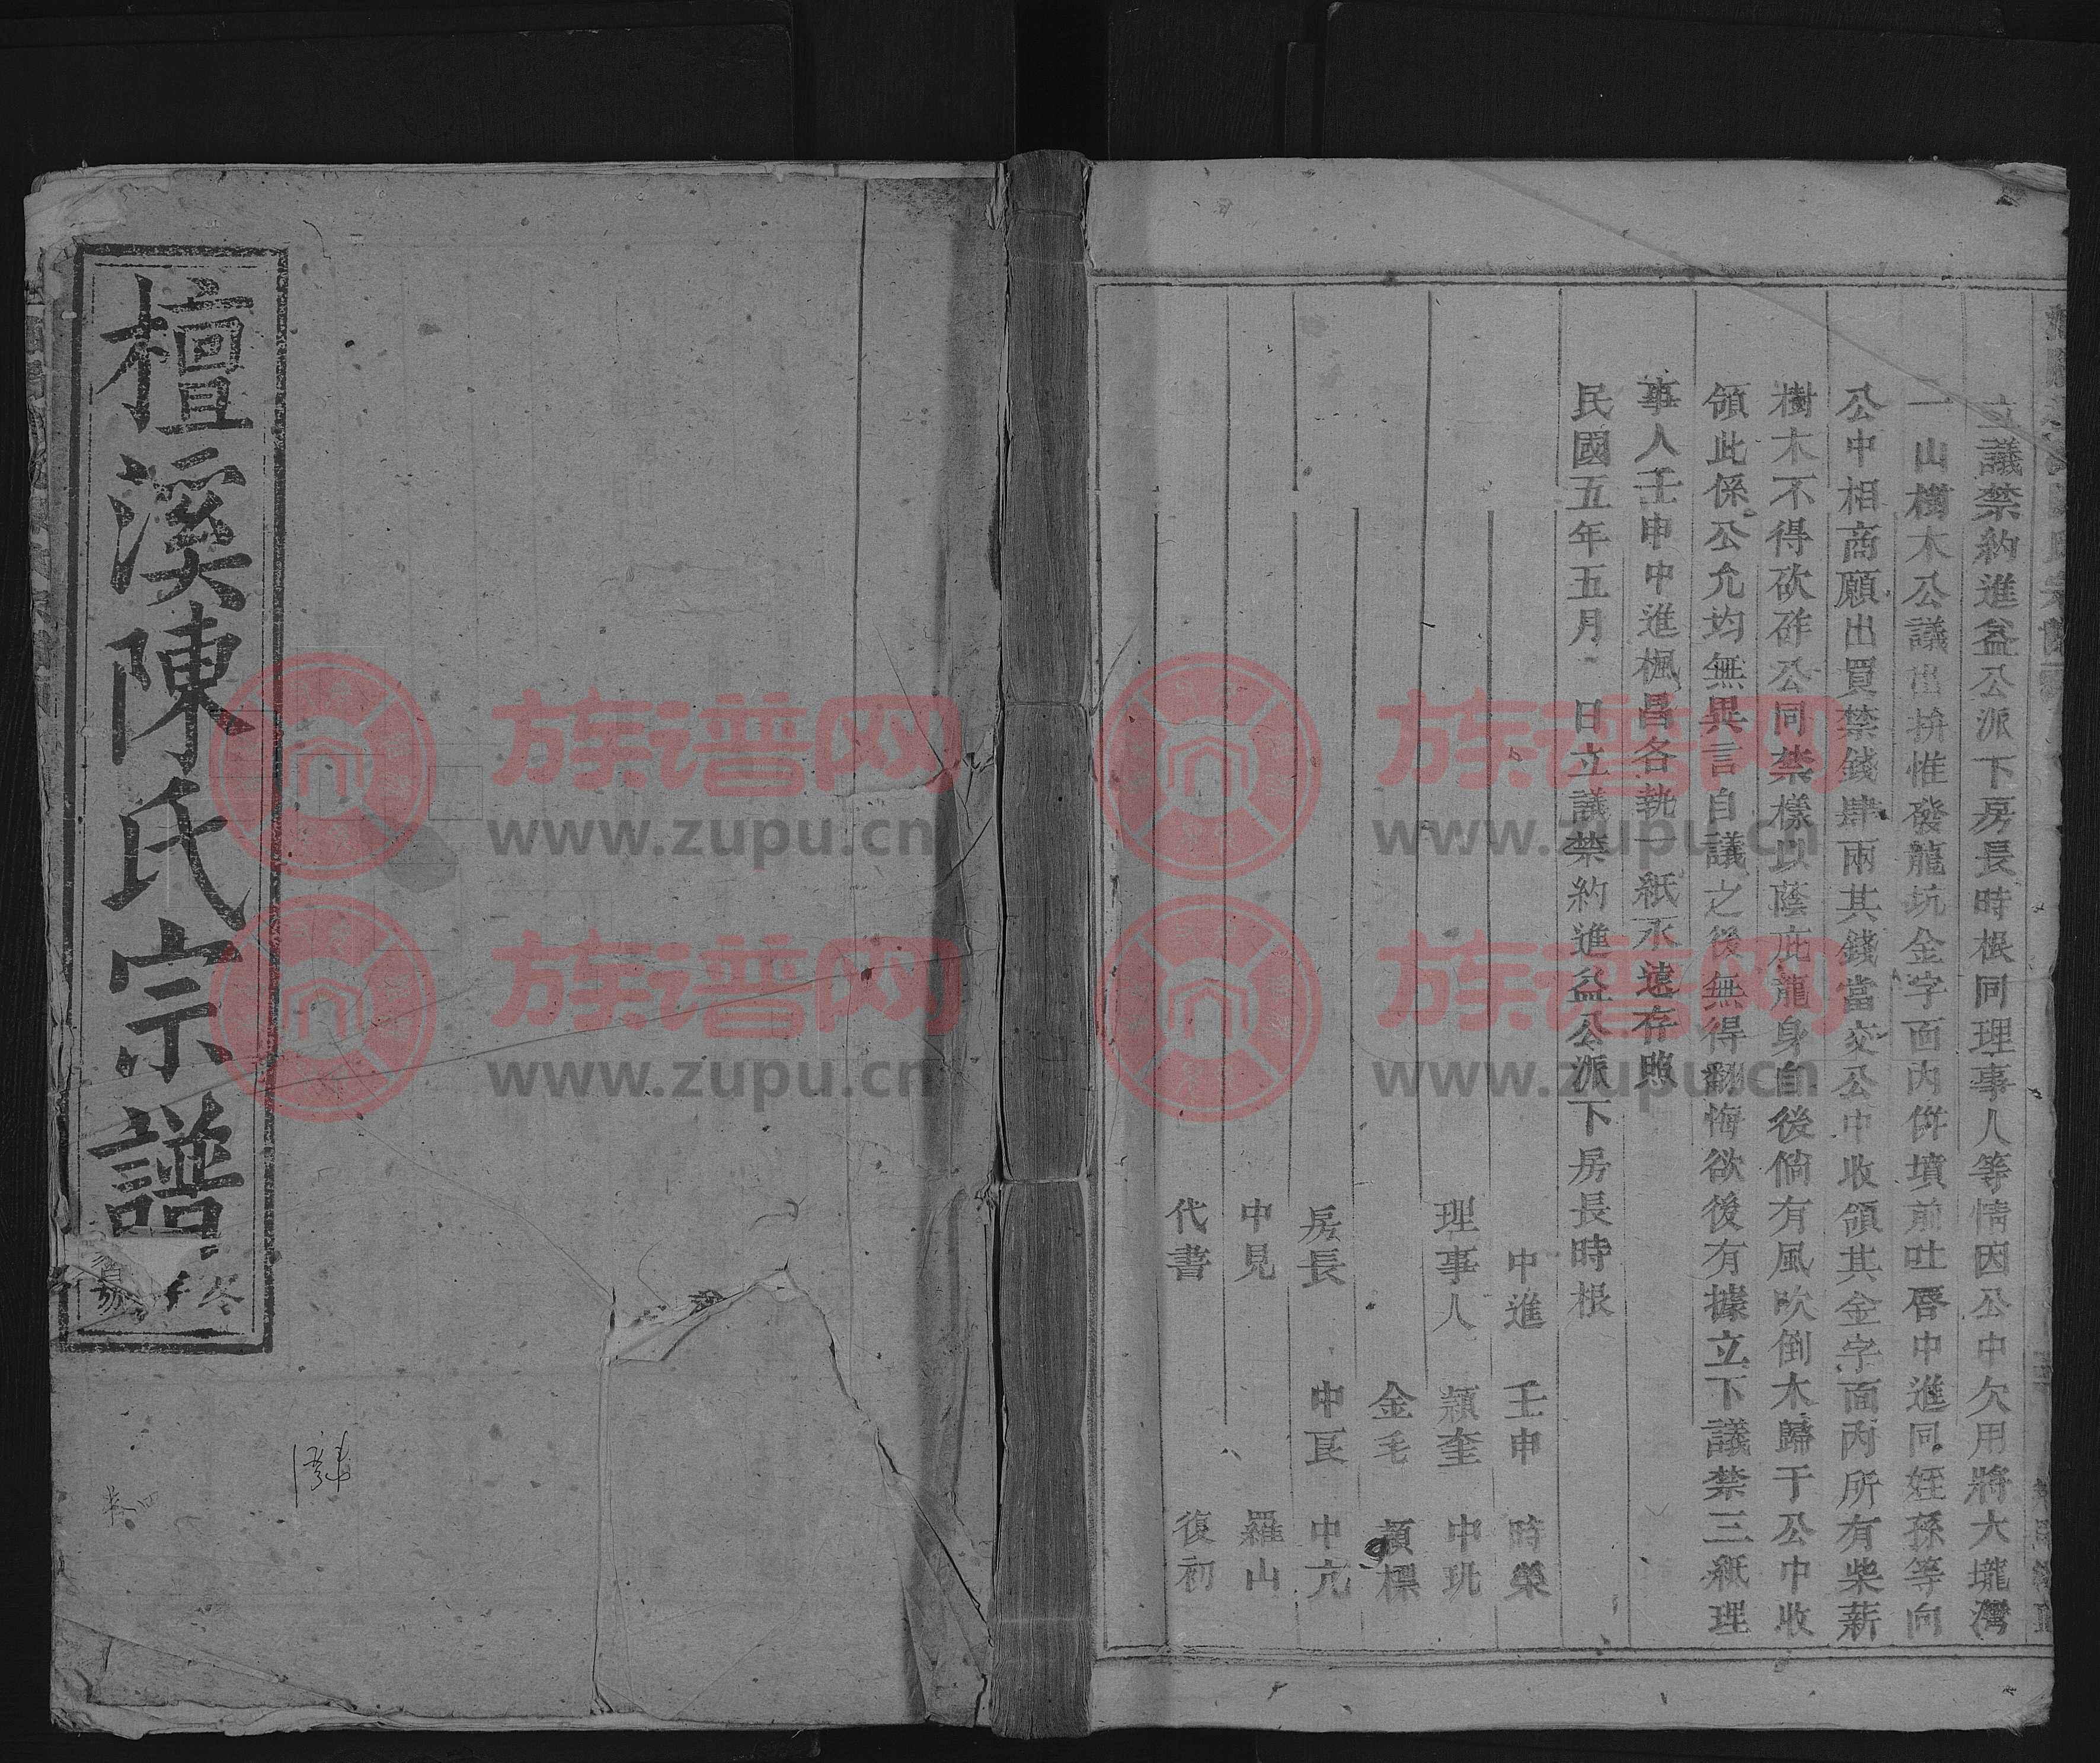 立議禁約進益公派下房長時根同理事人等情因公中欠用將大壠灣
一山樹木公議出拚惟發龍坑金字面內併墳前吐唇中進同姪孫等向
公中相商願出買禁錢肆兩其錢當交公中收領其金字面內所有柴薪
樹木不得砍砟公同禁樣以蔭庇龍身自後倘有風吹倒木歸于公中收
領此係公允均無異言自議之後無得翻悔欲後有據立下議禁三紙理
事人壬申中進楓昌各執一紙永遠存照
民國五年五月 日立議禁約進益公派下房長時根
中進 壬申 時榮
理事人 穎奎 中玑
金毛 標
房長 中艮 中亢
中見 羅山
代書 復初
檀溪陳氏宗譜
卷四
族谱网
www.zupu.cn
族谱网
www.zupu.cn
族谱网
www.zupu.cn
族谱网
www.zupu.cn